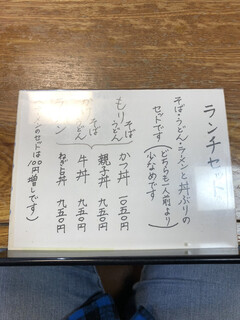 ランチセット
そば・うどん・ラーメンと丼ぶりの
セットです(どちらも一人前より
少なめです)
もり そば うどん
かけ そば うどん
ラーメン
かつ丼 一〇五〇円
親子丼 九五〇円
牛丼 九五〇円
ねぎ丼 九五〇円
ラーメンのセットは100円増しです)